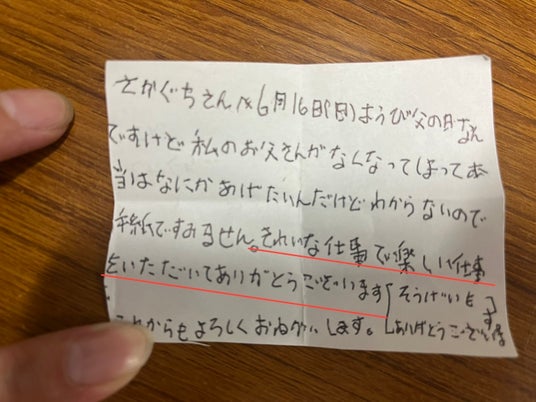 さかぐちさんへ6月16日(日)ようび父の日なん
ですけどで私のお父さんがなくなってしまって本
当はなにかあげたいんだけどわからないので
手紙ですみません。きれいな仕事で楽しい仕事
をいただいてありがとうございます[そうげいも]
これからもよろしくおねがいします。[ありがとうございます]